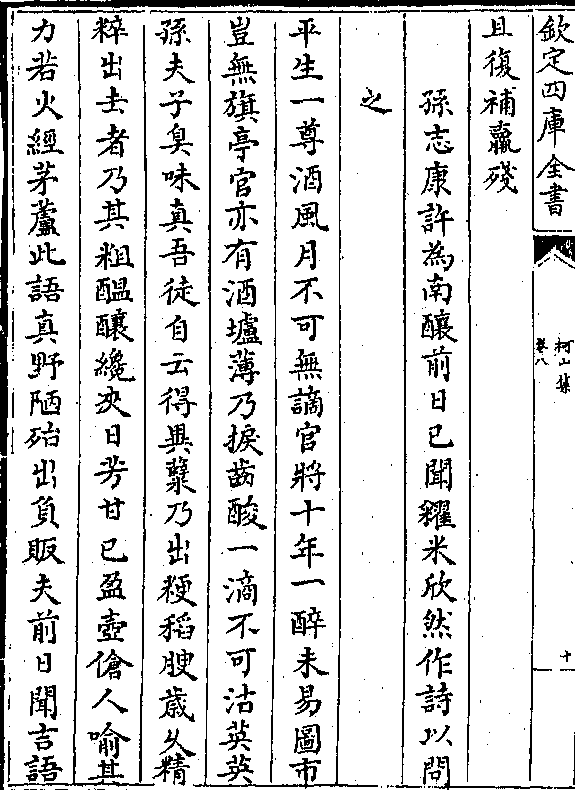 欽定四庫全書
柯山集
卷八
十
且復補羸殘
孫志康許為南釀前日已聞糴米欣然作詩以問
之
平生一尊酒風月不可無謫官將十年一醉未易圖市
豈無旗亭官亦有酒壚薄乃捩齒酸一滴不可沽英英
孫夫子臭味真吾徒自云得異蘖乃出粳稻腴歲久精
粹出去者乃其粗醖釀纔浹日芳甘已盈壺傖人喻其
力若火經茅蘆此語真野陋殆出負販夫前日聞言語